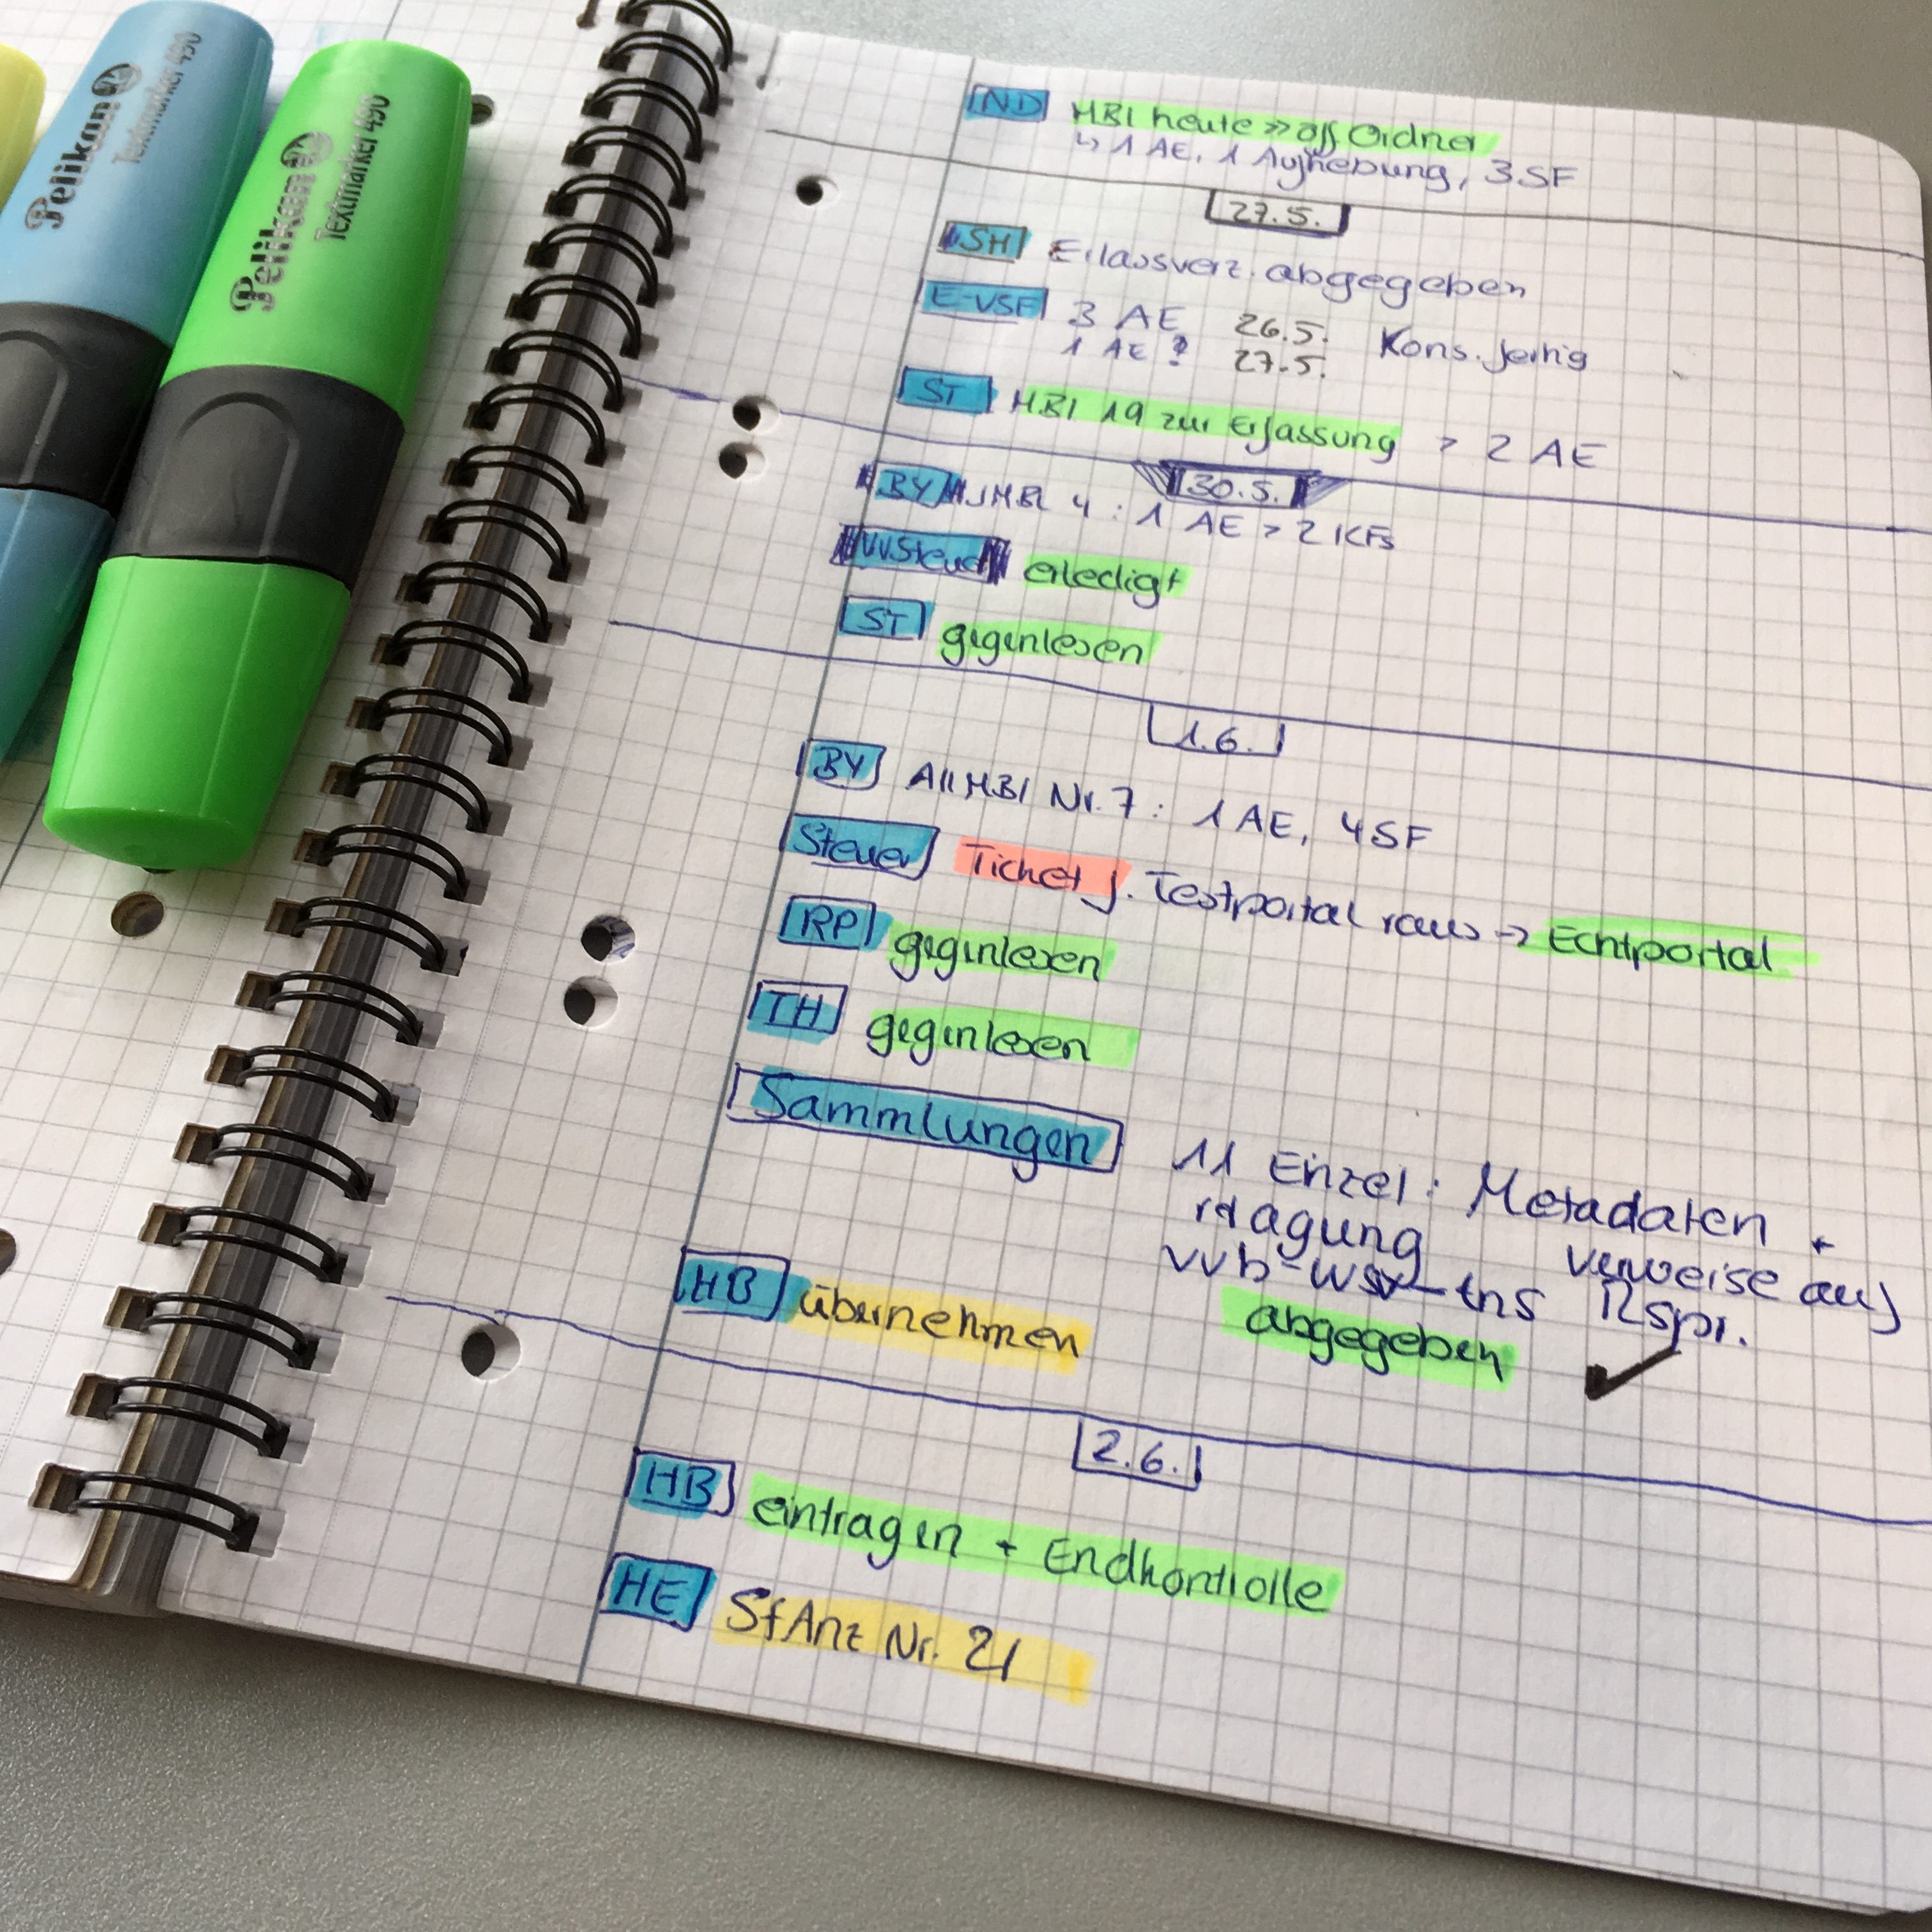 Pelikan
Textmarker 490
Pelikan
Textmarker 490
ND MBl heute » öff. Ordner
↳ 1 AE, 1 Aufhebung, 3 SF
27.5.
SH Erlassverz. abgegeben
E-VSF 3 AE 26.5. Kons. fertig
1 AE ? 27.5.
ST MBl 19 zur Erfassung > 2 AE
30.5.
BY JMBl 4 : 1 AE > 2 KFs
VVSteuer erledigt
ST gegenlesen
1.6.
BY AllMBl Nr. 7 : 1 AE, 4 SF
Steuer Ticket f. Testportal raus → Echtportal
RP gegenlesen
TH gegenlesen
Sammlungen 11 Einzel : Metadaten +
vvb-wsv-tns Verweise auf
Rspr.
HB übernehmen abgegeben ✓
2.6.
HB eintragen + Endkontrolle
HE StAnz Nr. 21